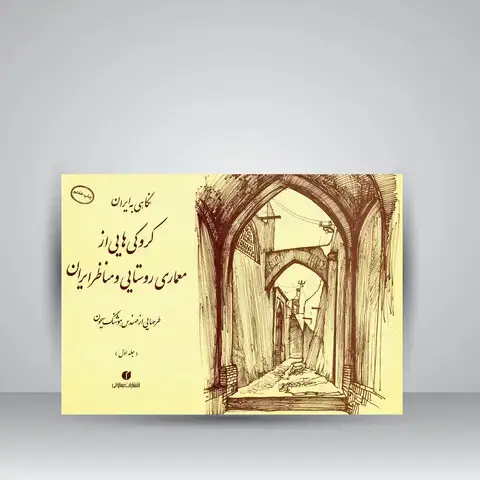 چاپ هفتم
نگاهی به ایران
کروکی‌هایی از
معماری روستایی و مناظر ایران
طرحهایی از مهندس هوشنگ سیحون
(جلد اول)
انتشارات یساولی